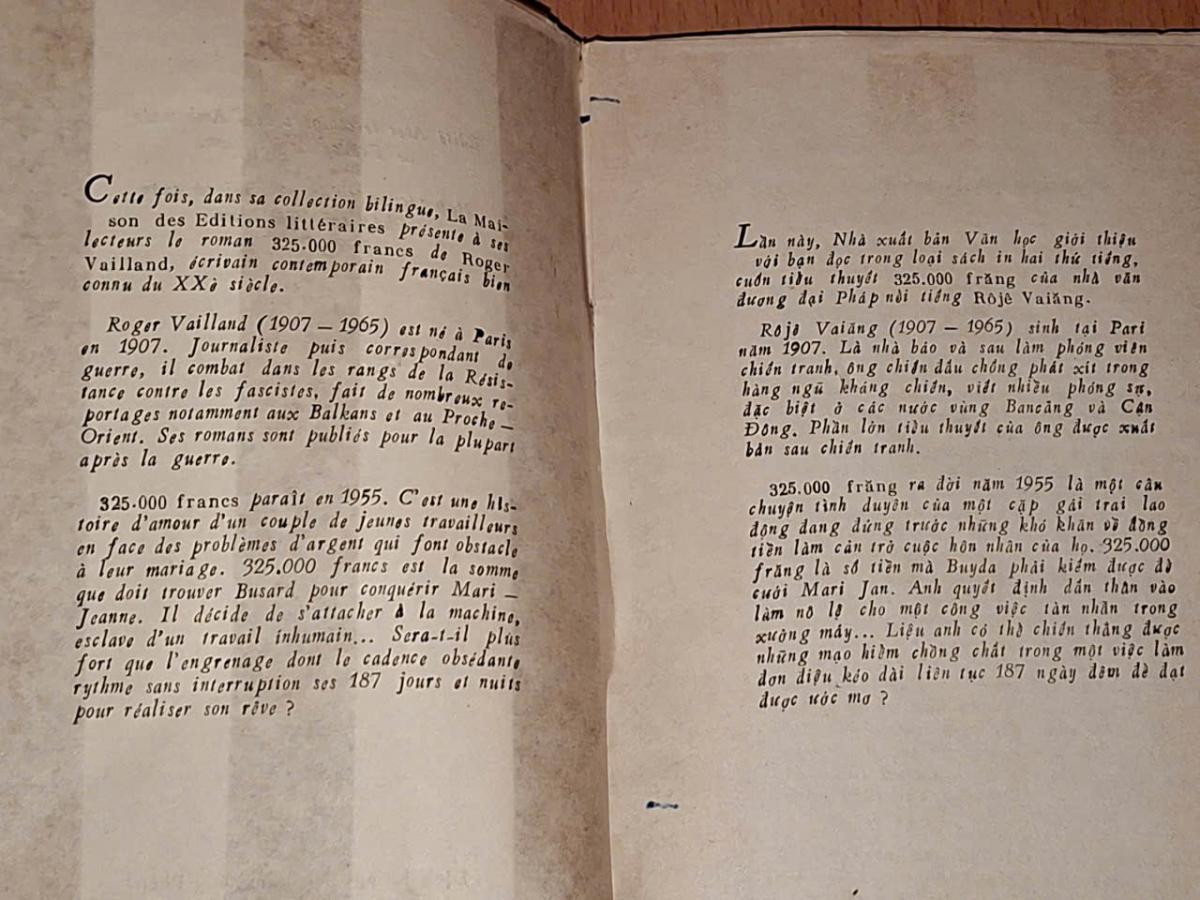 Cette fois, dans sa collection bilingue, La Mai-
son des Editions littéraires présente à ses
lecteurs le roman 325.000 francs de Roger
Vailland, écrivain contemporain français bien
connu du XXè siècle.
Roger Vailland (1907 — 1965) est né à Paris
en 1907. Journaliste puis correspondant de
guerre, il combat dans les rangs de la Résis-
tance contre les fascistes, fait de nombreux re-
portages notamment aux Balkans et au Proche —
Orient. Ses romans sont publiés pour la plupart
après la guerre.
325.000 francs paraît en 1955. C'est une his-
toire d'amour d'un couple de jeunes travailleurs
en face des problèmes d'argent qui font obstacle
à leur mariage. 325.000 francs est la somme
que doit trouver Busard pour conquérir Mari —
Jeanne. Il décide de s'attacher à la machine,
esclave d'un travail inhumain... Sera-t-il plus
fort que l'engrenage dont le cadence obsédante
rythme sans interruption ses 187 jours et nuits
pour réaliser son rêve ?
Lần này, Nhà xuất bản Văn học giới thiệu
với bạn đọc trong loại sách in hai thứ tiếng,
cuốn tiểu thuyết 325.000 frăng của nhà văn
đương đại Pháp nổi tiếng Rôjê Vaiăng.
Rôjê Vaiăng (1907 — 1965) sinh tại Pari
năm 1907. Là nhà báo và sau làm phóng viên
chiến tranh, ông chiến đấu chống phát xít trong
hàng ngũ kháng chiến, viết nhiều phóng sự,
đặc biệt ở các nước vùng Bancăng và Cận
Đông. Phần lớn tiểu thuyết của ông được xuất
bản sau chiến tranh.
325.000 frăng ra đời năm 1955 là một câu
chuyện tình duyên của một cặp gái trai lao
động đang đứng trước những khó khăn về đồng
tiền làm cản trở cuộc hôn nhân của họ. 325.000
frăng là số tiền mà Buyda phải kiếm được để
cưới Mari Jan. Anh quyết định dấn thân vào
làm nô lệ cho một công việc tàn nhẫn trong
xưởng máy... Liệu anh có thể chiến thắng được
những mạo hiểm chồng chất trong một việc làm
đơn điệu kéo dài liên tục 187 ngày đêm để đạt
được ước mơ ?